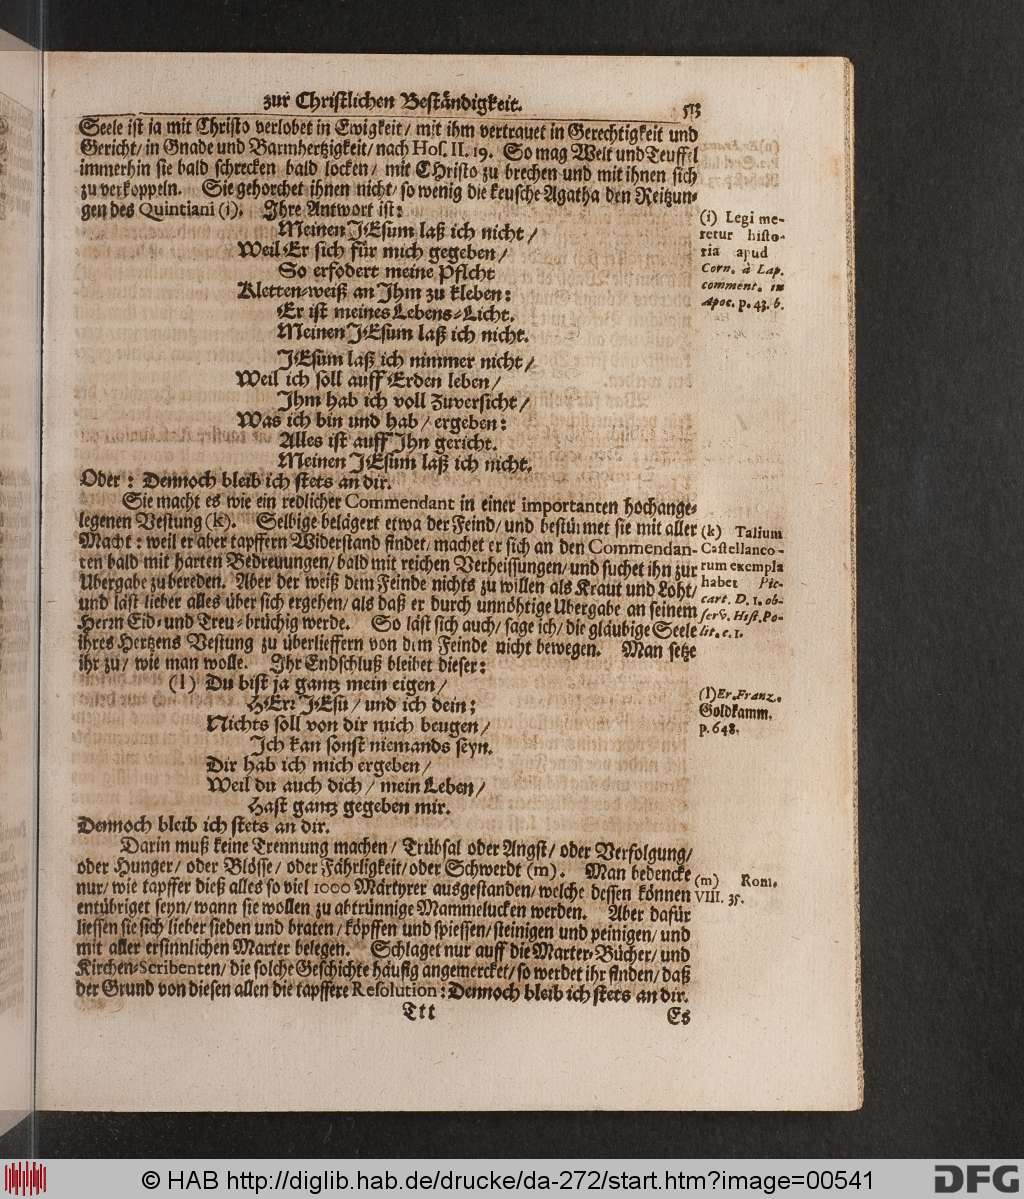 zur Christlichen Beständigkeit. 513
Seele ist ja mit Christo verlobet in Ewigkeit/ mit ihm vertrauet in Gerechtigkeit und
Gericht/ in Gnade und Barmhertzigkeit/ nach Hos. II. 19. So mag Welt und Teuffel
immerhin sie bald schrecken bald locken/ mit CHristo zu brechen und mit ihnen sich
zu verkoppeln. Sie gehorchet ihnen nicht/ so wenig die keusche Agatha den Reitzun-
gen des Quintiani (i). Ihre Antwort ist:
(i) Legi me-
retur histo-
ria apud
Corn. à Lap.
comment. in
Apoc. p. 43. b.
Meinen JEsum laß ich nicht/
Weil Er sich für mich gegeben/
So erfodert meine Pflcht
Kletten-weiß an Ihm zu kleben:
Er ist meines Lebens-Licht.
Meinen JEsum laß ich nicht.
JEsum laß ich nimmer nicht/
Weil ich soll auff Erden leben/
Ihm hab ich voll Zuversicht/
Was ich bin und hab/ ergeben:
Alles ist auff Ihn gericht.
Meinen JEsum laß ich nicht.
Oder: Dennoch bleib ich stets an dir.
Sie macht es wie ein redlicher Commendant in einer importanten hochange-
legenen Vestung (k). Selbige belägert etwa der Feind/ und bestürmet sie mit aller
Macht: weil er aber tapffern Widerstand findet/ machet er sich an den Commendan-
ten bald mit harten Bedreuungen/ bald mit reichen Verheissungen/ und suchet ihn zur
Ubergabe zu bereden. Aber der weiß dem Feinde nichts zu willen als Kraut und Loht/
und läst lieber alles über sich ergehen/ als daß er durch unnöhtige Ubergabe an seinem
Herrn Eid- und Treu-brüchig werde. So läst sich auch/ sage ich/ die gläubige Seele
ihres Hertzens Vestung zu überlieffern von dem Feinde nicht bewegen. Man setze
ihr zu/ wie man wolle. Ihr Endschluß bleibet dieser:
(k) Talium
Castellaneo-
rum exempla
habet Pic-
cart. D. 1. ob-
serv. Hist. Po-
lit. c. 1.
(l) Du bist ja gantz mein eigen/
HErr JEsu/ und ich dein;
Nichts soll von dir mich beugen/
Ich kan sonst niemands seyn.
Dir hab ich mich ergeben/
Weil du auch dich/ mein Leben/
Hast gantz gegeben mir.
(l) Er. Franz.
Goldkamm.
p. 648.
Dennoch bleib ich stets an dir.
Darin muß keine Trennung machen/ Trübsal oder Angst/ oder Verfolgung/
oder Hunger/ oder Blösse/ oder Fährligkeit/ oder Schwerdt (m). Man bedencke
nur/ wie tapffer dieß alles so viel 1000 Märtyrer ausgestanden/ welche dessen können
entübriget seyn/ wann sie wollen zu abtrünnige Mammelucken werden. Aber dafür
liessen sie sich lieber sieden und braten/ köpffen und spiessen/ steinigen und peinigen/ und
mit aller ersinnlichen Marter belegen. Schlaget nur auff die Marter-Bücher/ und
Kirchen-Scribenten/ die solche Geschichte häufig angemercket/ so werdet ihr finden/ daß
der Grund von diesen allen die tapffere Resolution: Dennoch bleib ich stets an dir.
(m) Rom.
VIII. 35.
Ttt Es
© HAB http://diglib.hab.de/drucke/da-272/start.htm?image=00541
DFG